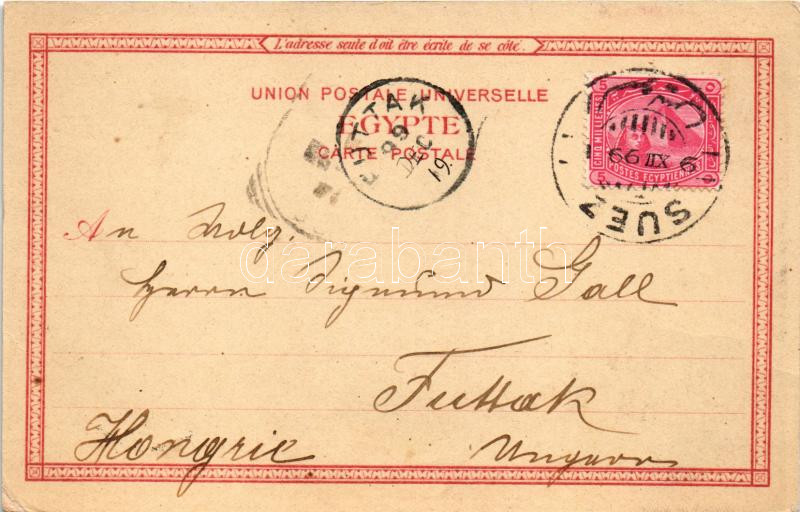 L'adresse seule doit être écrite de ce côté.
UNION POSTALE UNIVERSELLE
EGYPTE
CARTE POSTALE
FUTTAK
99
DEC
19.
5 5
CINQ MILLIEMES
POSTES EGYPTIENNES
5
SUEZ
9 XII 99
An Wolg.
Herrn Sigmund Gall
Futtak
Hongrie Ungarn
darabanth